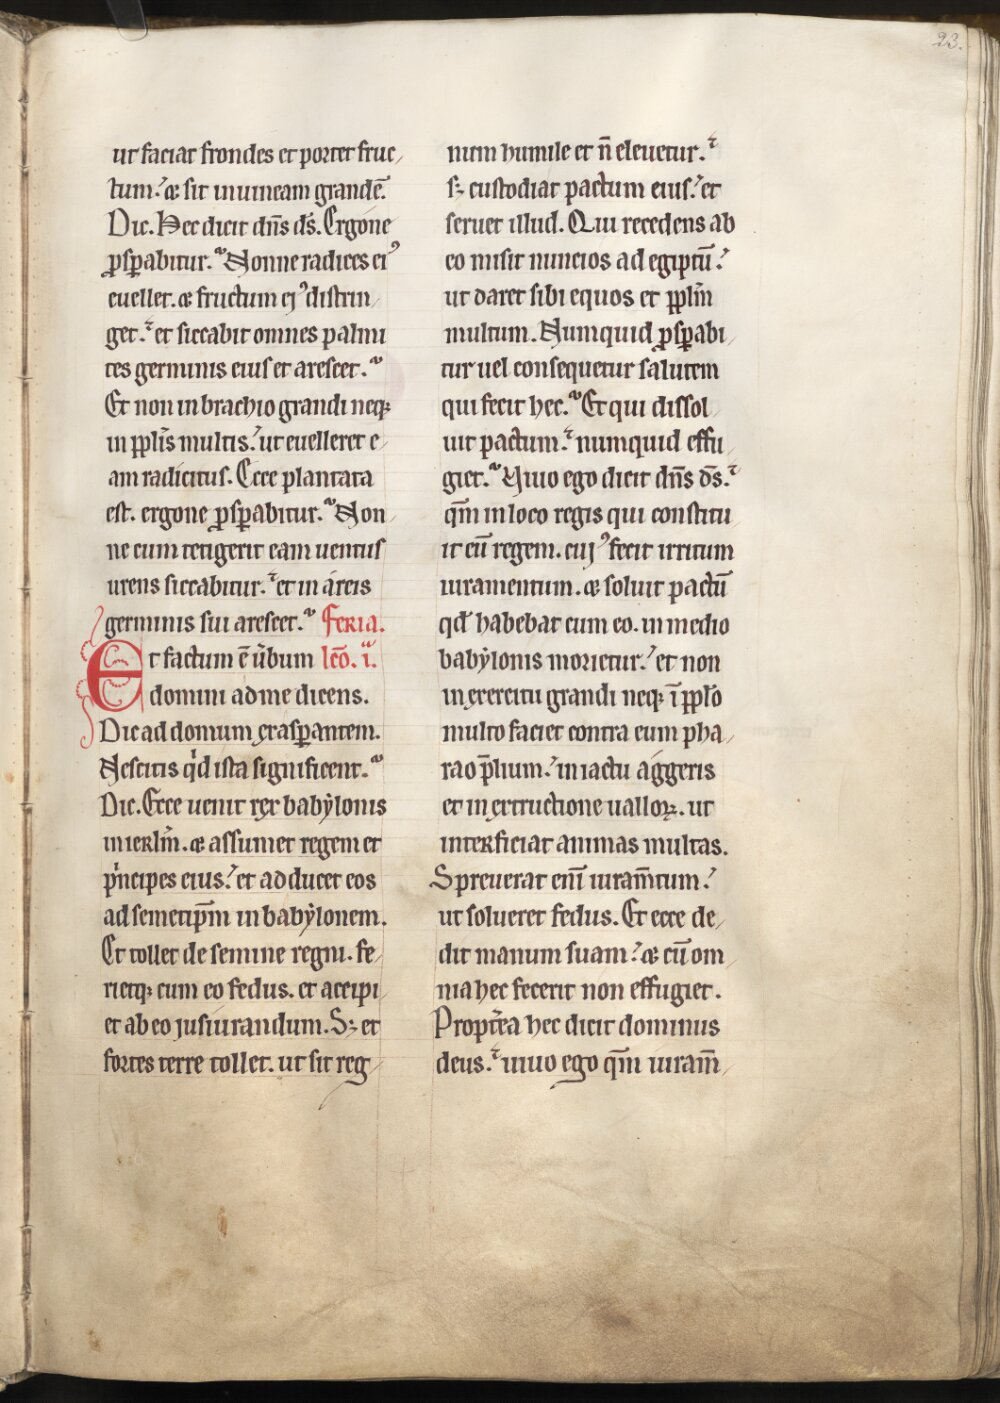 23.
ut faciat frondes et portet fruc/
tum. & sit in uineam grandē.
Dic. Hec dicit dn̄s ds̄. Ergone
ꝓsꝑabitur. Nonne radices eiꝰ
euellet. & fructum ejꝰ distrin/
get. et siccabit omnes palmi
tes germinis eius et arescet.
Et non in brachio grandi neqꝫ
in ppl̄is multis. ut euelleret e/
am radicitus. Ecce plantata
est. ergone ꝓsꝑabitur. Non/
ne cum tetigerit eam uentus
urens siccabitur. et in areis
germinis sui arescet. Feria.
Et factum ē ūbum lc̄o. i.
domini ad me dicens.
Dic ad domum exasꝑantem.
Nescitis qͥd ista significent.
Dic. Ecce uenit rex babylonis
in ierlm̄. & assumet regem et
pͥncipes eius. et adducet eos
ad semetip̄m in babylonem.
Et tollet de semine regni. fe/
rietqꝫ cum eo fedus. et accipi/
et ab eo jusiurandum. Sꝫ et
fortes terre tollet. ut sit reg/
num humile et n̄ eleuetur.
sꝫ custodiat pactum eius. et
seruet illud. Qui recedens ab
eo misit nuncios ad egiptū.
ut daret sibi equos et ppl̄m
multum. Numquid ꝓsꝑabi/
tur uel consequetur salutem
qui fecit hec. Et qui dissol/
uit pactum. numquid effu/
giet. Viuo ego dicit dn̄s ds̄.
qm̄ in loco regis qui constitu/
it eū regem. cujꝰ fecit irritum
iuramentum. & soluit pactū
qd̄ habebat cum eo. in medio
babylonis morietur. et non
in exercitu grandi neqꝫ ī ppl̄o
multo faciet contra eum pha/
rao p̄lium. in iactu aggeris
et in extructione ualloꝝ. ut
interficiat animas multas.
Spreuerat eni̅ iuram̄tum.
ut solueret fedus. Et ecce de/
dit manum suam. & cū om/
nia hec fecerit non effugiet.
Propt̄ea hec dicit dominus
deus. uiuo ego qm̄ iuram̄/